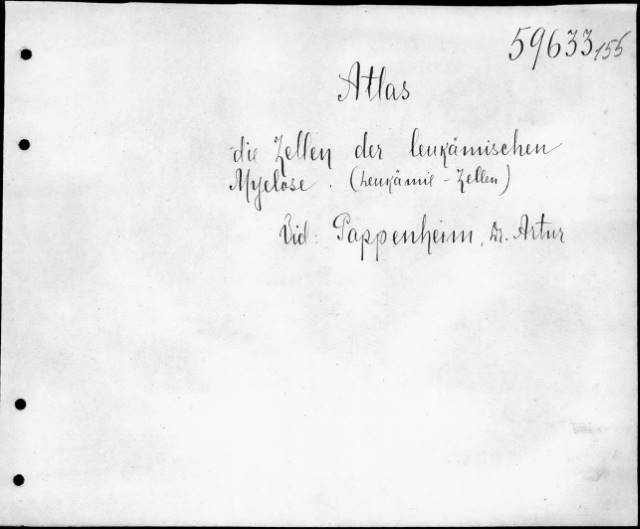 59633/155
Atlas
die Zellen der leukämischen
Myelose. (Leukämie-Zellen)
Vid: Pappenheim, Dr. Artur